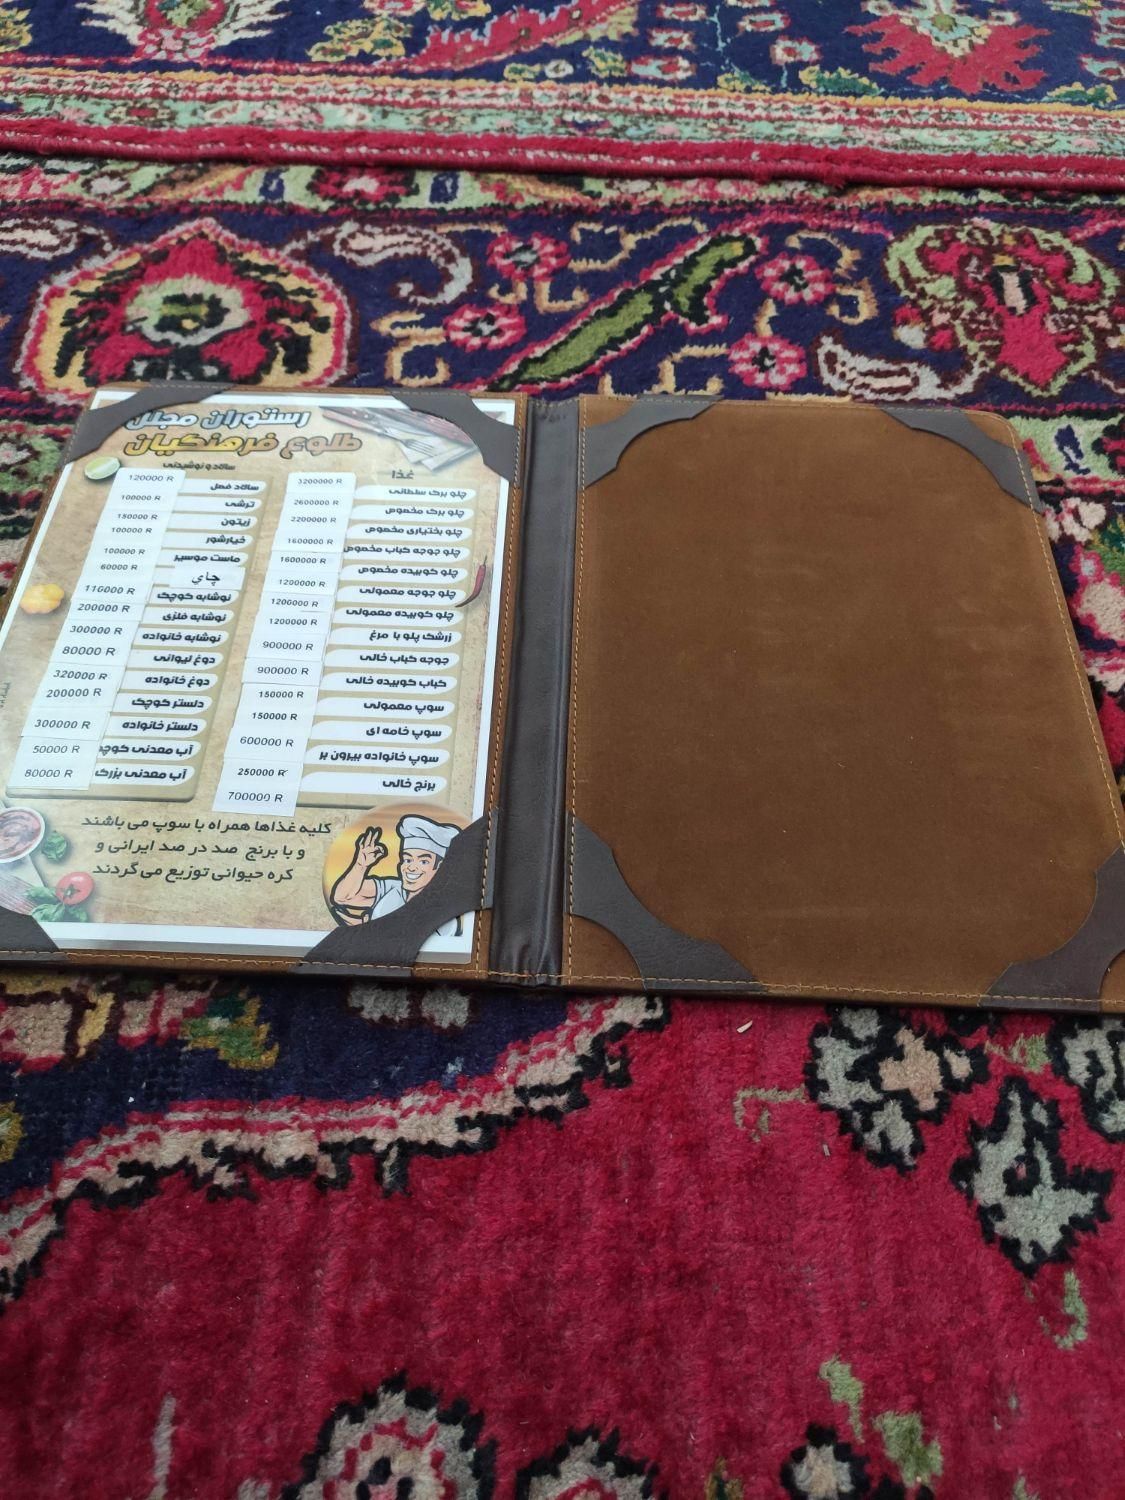 رستوران مجلل
طلوع فرهنگیان
غذا
3200000 R چلو برگ سلطانی
2600000 R چلو برگ مخصوص
2200000 R چلو بختیاری مخصوص
1600000 R چلو جوجه کباب مخصوص
1600000 R چلو کوبیده مخصوص
1200000 R چلو جوجه معمولی
1200000 R چلو کوبیده معمولی
1200000 R زرشک پلو با مرغ
900000 R جوجه کباب خالی
900000 R کباب کوبیده خالی
150000 R سوپ معمولی
150000 R سوپ خامه ای
600000 R سوپ خانواده بیرون بر
250000 R برنج خالی
700000 R
سالاد و نوشیدنی
120000 R سالاد فصل
100000 R ترشی
150000 R زیتون
100000 R خیارشور
100000 R ماست موسیر
60000 R چاي
110000 R نوشابه کوچک
200000 R نوشابه فلزی
300000 R نوشابه خانواده
80000 R دوغ لیوانی
320000 R دوغ خانواده
200000 R دلستر کوچک
300000 R دلستر خانواده
50000 R آب معدنی کوچک
80000 R آب معدنی بزرگ
کلیه غذاها همراه با سوپ می باشند
و با برنج صد در صد ایرانی و
کره حیوانی توزیع می گردند